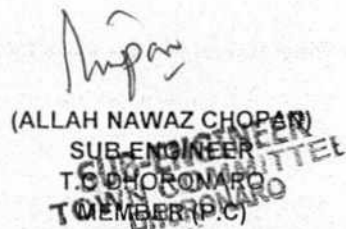 (ALLAH NAWAZ CHOPAN)
SUB-ENGINEER
T.C DHORONARO
MEMBER (P.C)
SUB-ENGINEER
TOWN COMMITTEE
DHORONARO